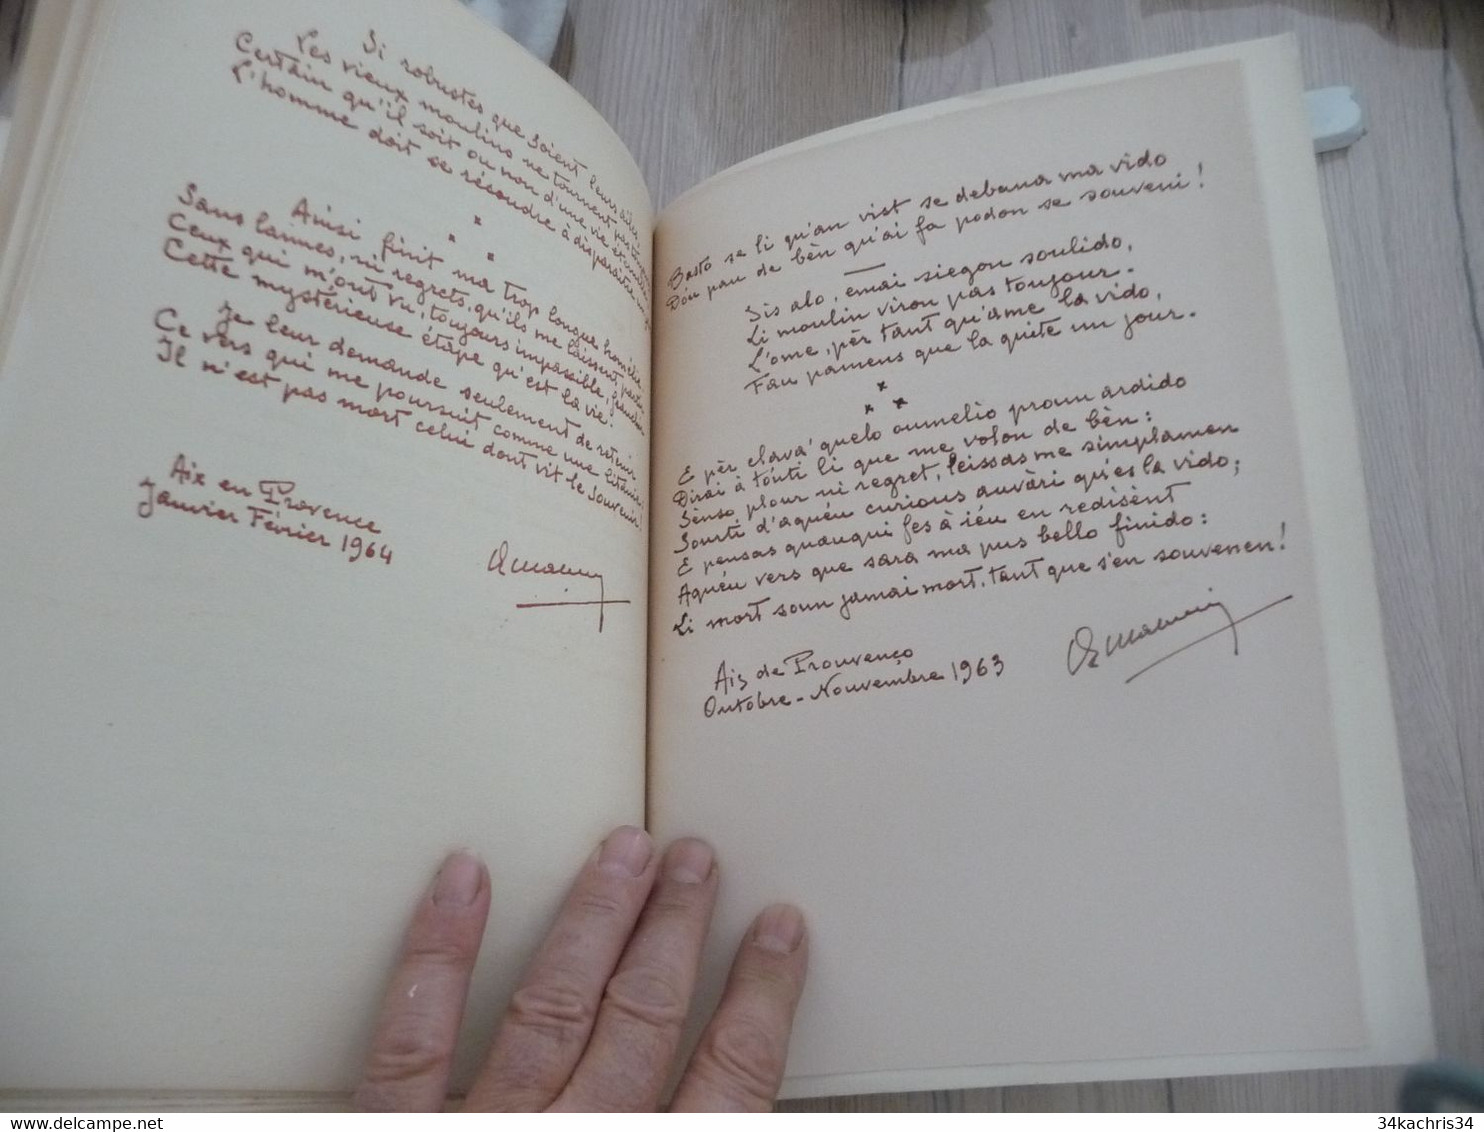 Si robustes que soient leurs ailes
Les vieux moulins ne tournent pas toujours
Certain qu'il soit ou non d'une vie éternelle
L'homme doit se résoudre à disparaître un jour
Ainsi finit ma trop longue homélie
Sans larmes, ni regrets, qu'ils me laissent partir
Ceux qui m'ont vu, toujours impassible, franchir
Cette mystérieuse étape qu'est la vie.
Je leur demande seulement de retenir
Ce vers qui me poursuit comme une litanie:
Il n'est pas mort celui dont vit le souvenir!
Aix en Provence
Janvier Février 1964
Basto se li qu'an vist se debana ma vido
Dóu pau de bèn qu'ai fa podon se souveni!
Sis alo, émai siegon soulido,
Li moulin viron pas toujour.
L'ome, pèr tant qu'ame la vido,
Fau pamens que la quite un jour.
E pèr clava' quelo oumelio proun ardido
Dirai à tóuti li que me volon de bèn:
Sènso plour ni regret, leissas me simplamen
Sourti d'aquéu curious auvàri qu'es la vido;
E pensas quauqui fes à iéu en redisènt
Aquéu vers que sara ma pus bello finido:
Li mort soun jamai mort, tant que s'en souvenen!
Aix de Prouvenço
Outobre - Nouvembre 1963
34kachris34